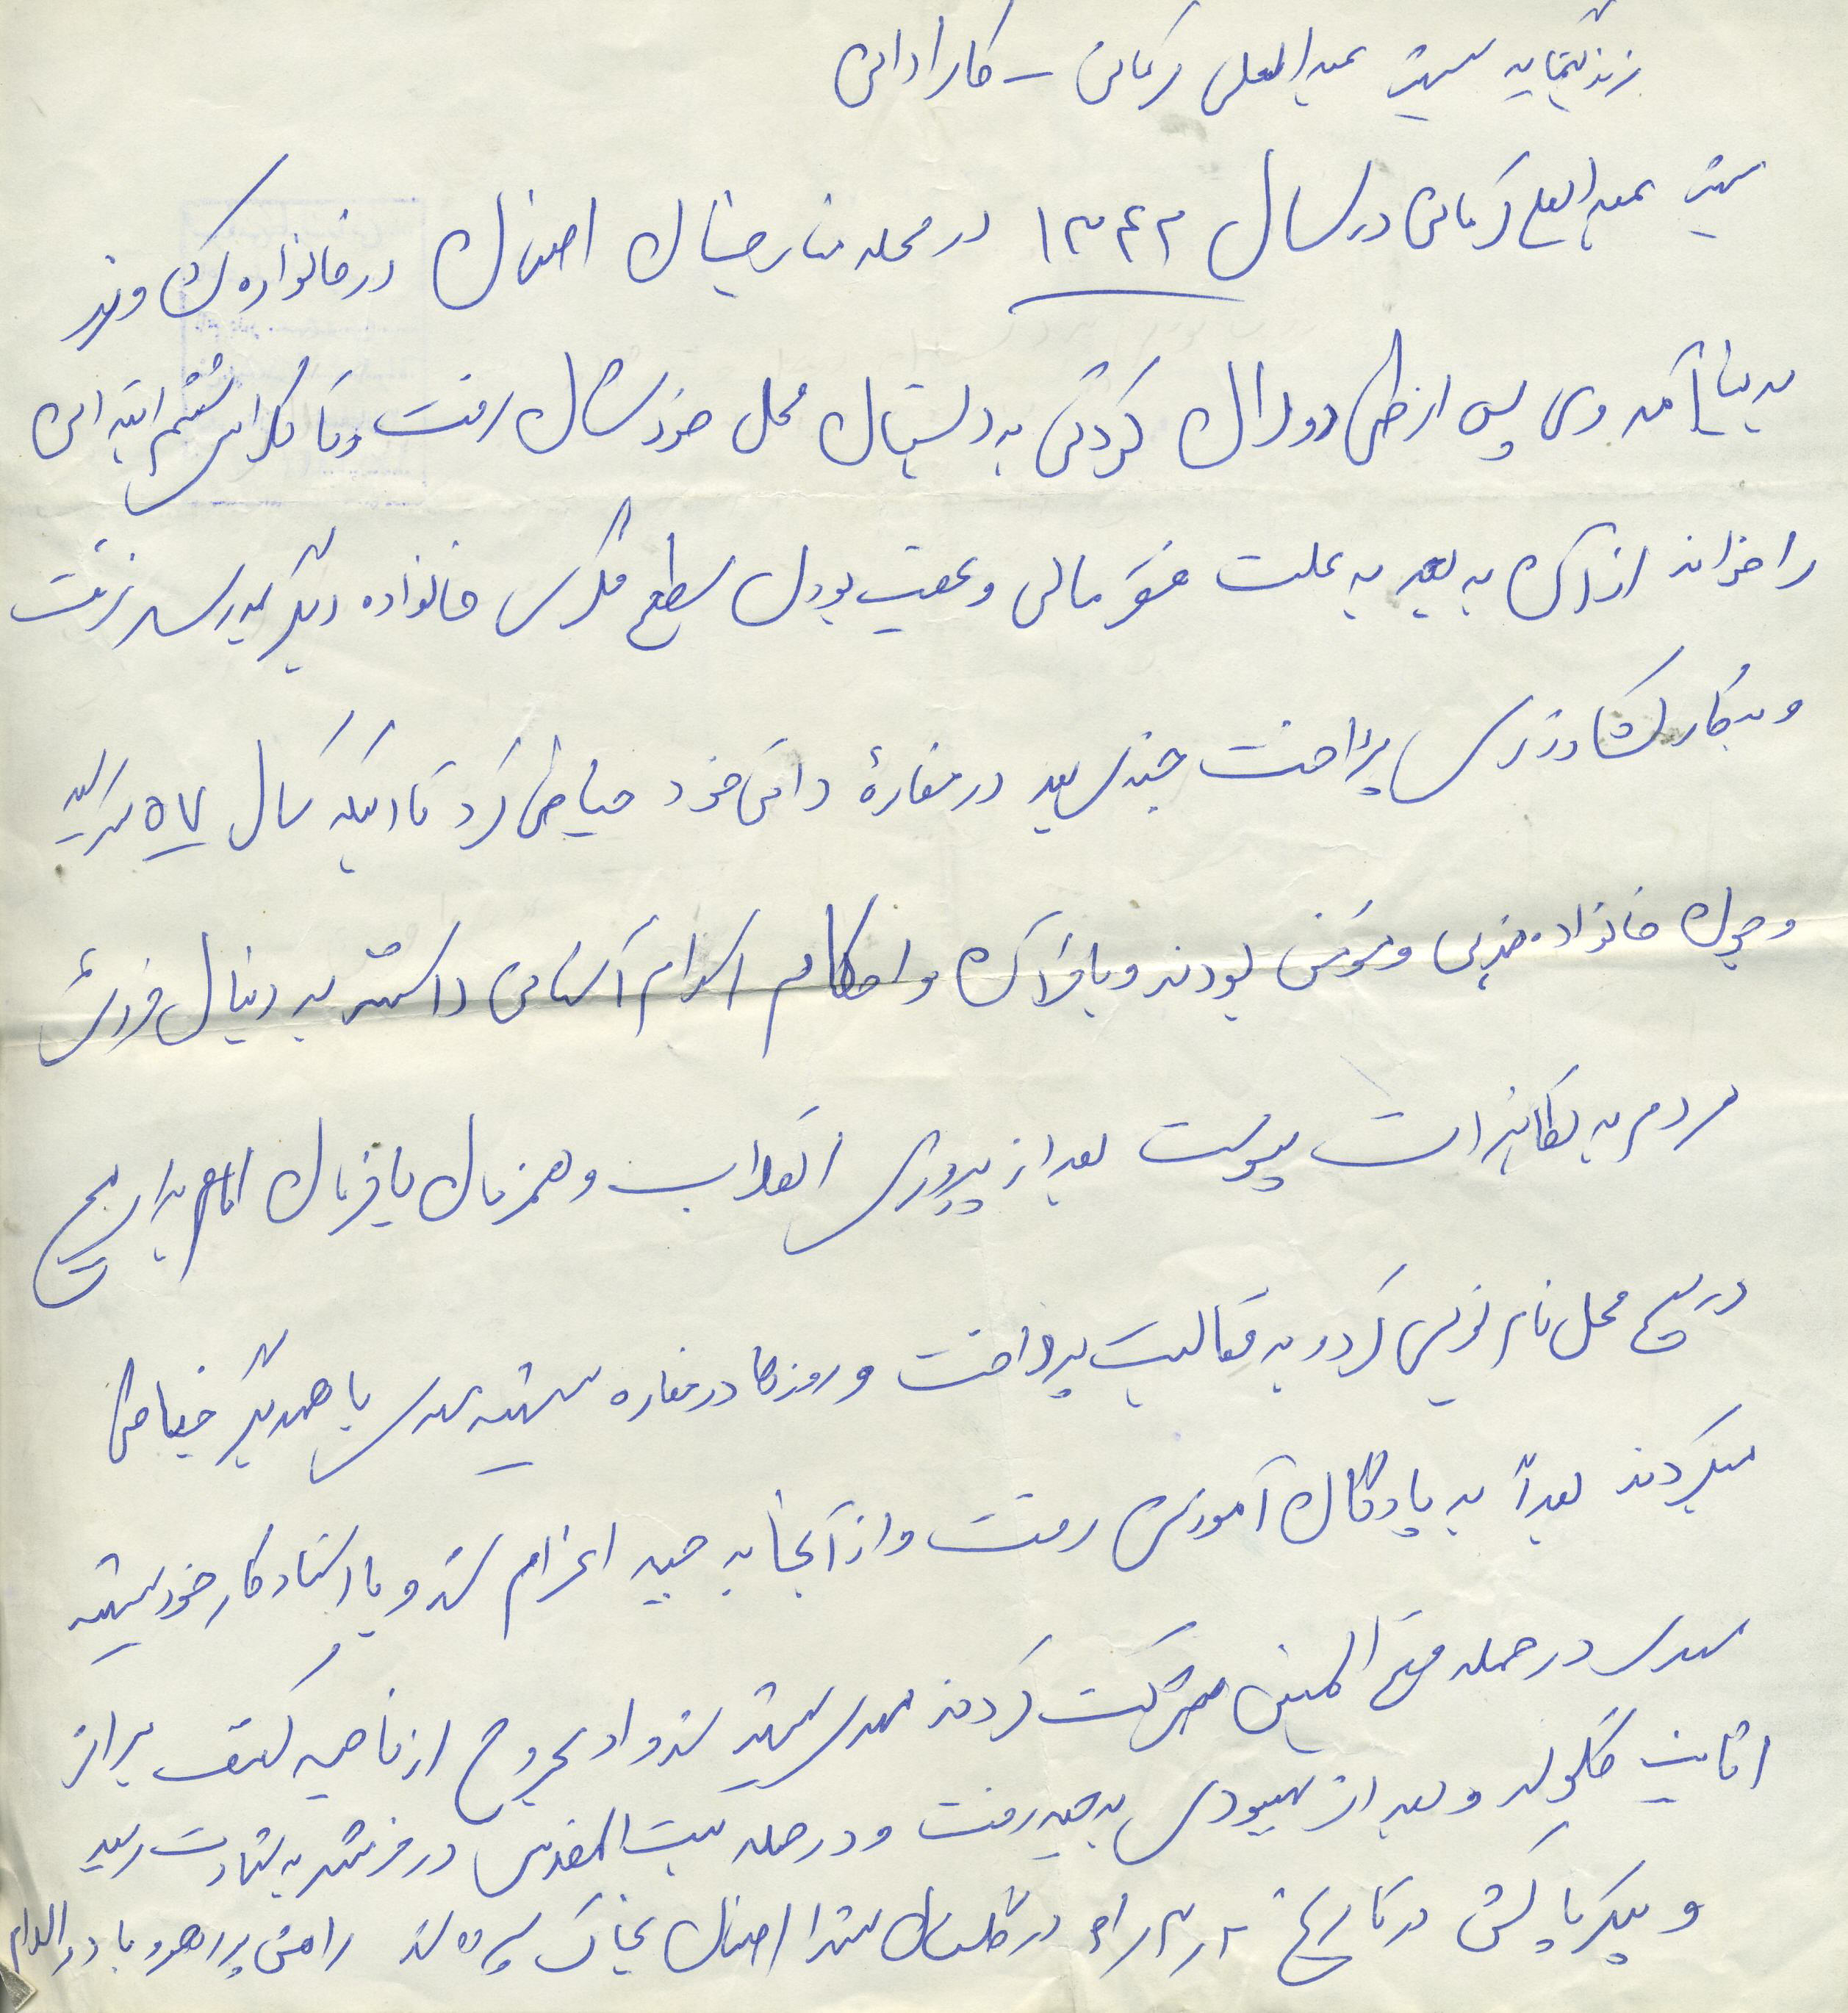 زندگینامه شهید عبدالعلی کرمانی – کارادانی
شهید عبدالعلی کرمانی در سال ۱۳۴۲ در محله منارجنبان اصفهان در خانواده کشاورز
بدنیا آمد وی پس از طی دوران کودکی به دبستان محل خودشان رفت و تا کلاس ششم ابتدائی
را خواند از آن به بعد به علت فقر مالی و عقب بودن سطح فکری خانواده دیگر بمدرسه نرفت
و بکار کشاورزی پرداخت چندی بعد در مغازۀ دائی خود خیاطی کرد تا اینکه سال ۵۷ رسید
و چون خانواده مذهبی و مؤمن بودند و با قرآن و احکام اسلام آشنائی داشتند به دنبال خروش
مردم به تظاهرات پیوست بعد از پیروزی انقلاب و همزمان با فرمان امام به بسیج
در بسیج محل نام نویسی کرد و به فعالیت پرداخت و روزها در مغازه شهید مهدی با همدیگر خیاطی
میکردند بعداً به پادگان آموزشی رفت و از آنجا به جبهه اعزام شد و با استاد کار خود شهید
مهدی در حمله فتح المبین شرکت کردند مهدی شهید شد و او مجروح از ناحیه کتف بر اثر
اثابت گلوله و بعد از بهبودی به جبهه رفت و در حمله بیت المقدس در خرمشهر به شهادت رسید
و پیکر پاکش در تاریخ ۲ر۳ر۶۱ در گلستان شهدا اصفهان بخاک سپرده شد راهش پر رهرو باد والسلام